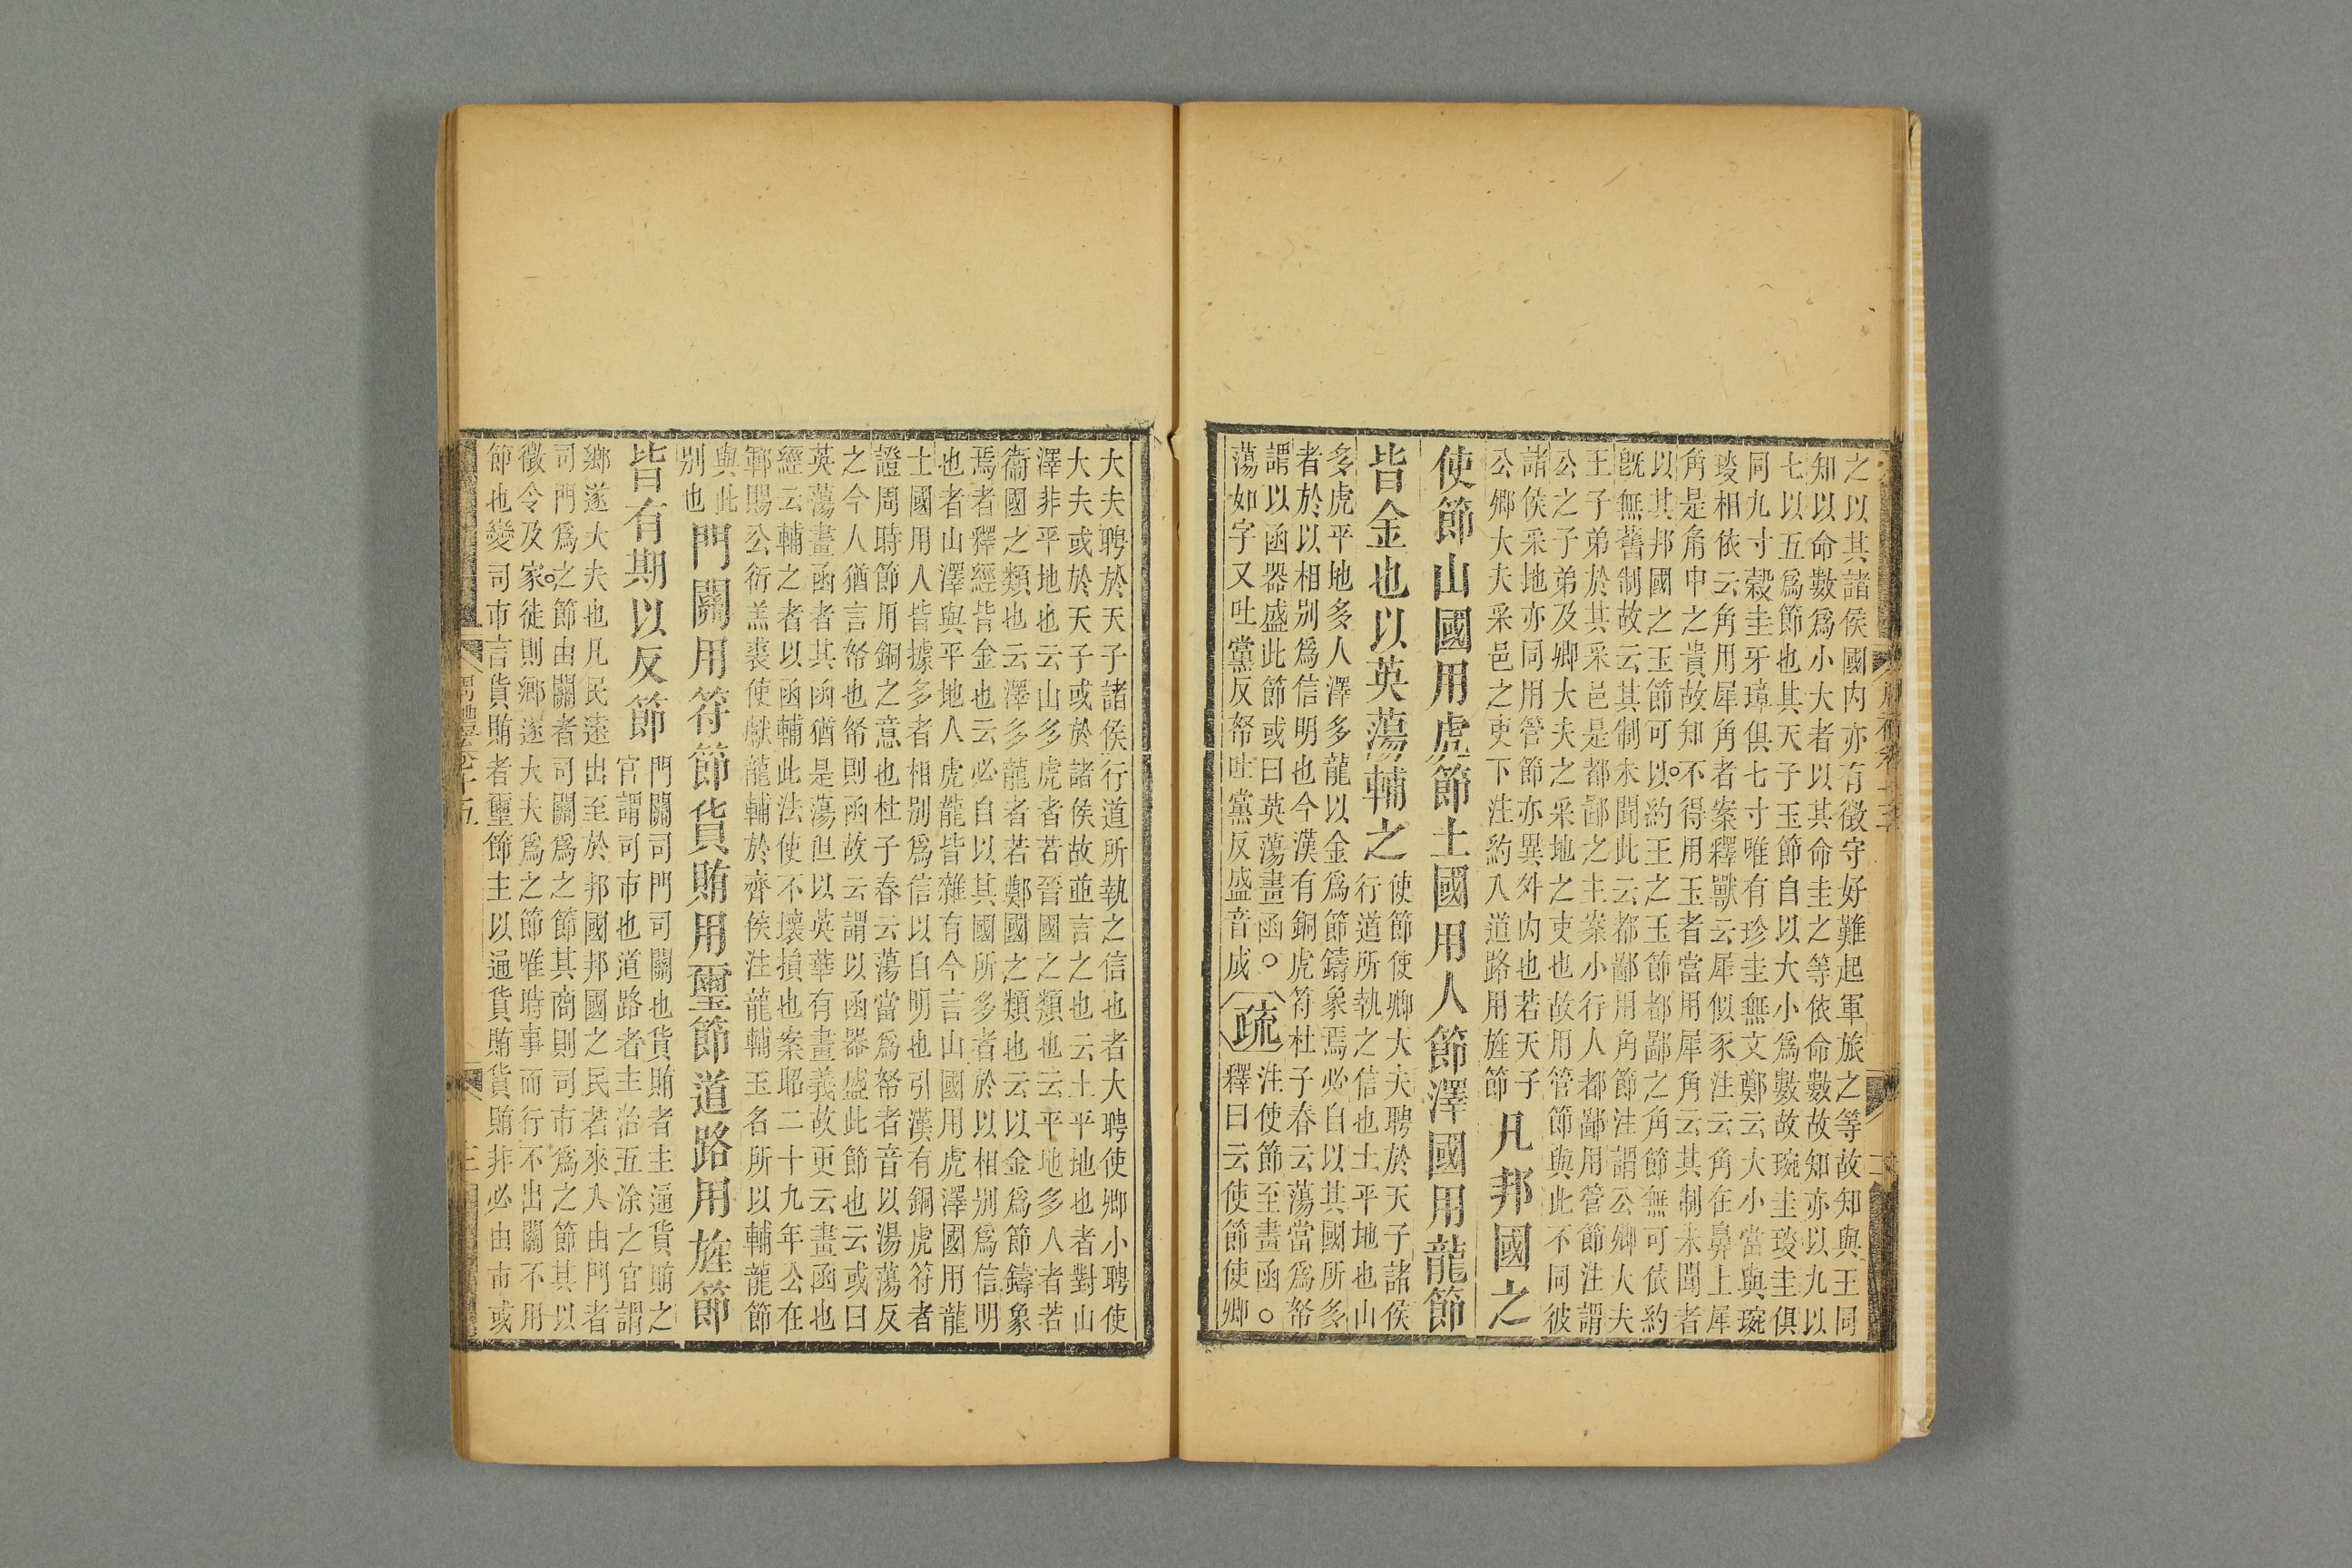 之以其諸侯國内亦有徵守好難起軍旅之等故知與王同
知以命數爲小大者以其命圭之等依命數故知亦以九以
七以五爲節也其天子玉節自以大小爲數故琬圭琰圭俱
同九寸榖圭牙璋俱七寸唯有珍圭無文鄭云大小當與琬
琰相依云角用犀角者案釋獸云犀似豕注云角在鼻上犀
角是角中之貴故知不得用玉者當用犀角云其制未聞者
以其邦國之玉節可以約王之玉節都鄙之角節無可依約
旣無舊制故云其制未聞此云都鄙用角節注謂公卿大夫
王子弟於其采邑是都鄙之主案小行人都鄙用管節注謂
公之子弟及卿大夫之采地之吏也故用管節與此不同彼
諸侯采地亦同用管節亦異外内也若天子
公卿大夫采邑之吏下注約入道路用旌節
凡邦國之
使節山國用虎節土國用人節澤國用龍節
皆金也以英蕩輔之
使節使卿大夫聘於天子諸侯
行道所執之信也土平地也山
多虎平地多人澤多龍以金爲節鑄象焉必自以其國所多
者於以相别爲信明也今漢有銅虎符杜子春云蕩當爲帑
謂以函器盛此節或曰英蕩畫函○疏注使節至畫函○
蕩如字又吐黨反帑吐黨反盛音成釋曰云使節使卿
大夫聘於天子諸侯行道所執之信也者大聘使卿小聘使
大夫或於天子或於諸侯故並言之也云土平地也者對山
澤非平地也云山多虎者若晉國之類也云平地多人者若
衞國之類也云澤多龍者若鄭國之類也云以金爲節鑄象
焉者釋經皆金也云必自以其國所多者於以相别爲信明
也者山澤與平地人虎龍皆雜有今言山國用虎澤國用龍
土國用人皆據多者相别爲信以自明也引漢有銅虎符者
證周時節用銅之意也杜子春云蕩當爲帑者音以湯蕩反
之今人猶言帑也帑則函故云謂以函器盛此節也云或曰
英蕩畫函者其函猶是蕩但以英華有畫義故更云畫函也
經云輔之者以函輔此法使不壞損也案昭二十九年公在
鄆賜公衍羔裘使獻龍輔於齊侯注龍輔玉名所以輔龍節
與此
别也
門關用符節貨賄用璽節道路用旌節
皆有期以反節
門關司門司關也貨賄者主通貨賄之
官謂司市也道路者主治五涂之官謂
鄉遂大夫也凡民遠出至於邦國邦國之民若來入由門者
司門爲之節由關者司關爲之節其商則司市爲之節其以
徵令及家徒則鄉遂大夫爲之節唯時事而行不出關不用
節也變司市言貨賄者璽節主以通貨賄貨賄非必由市或
周禮疏卷十五